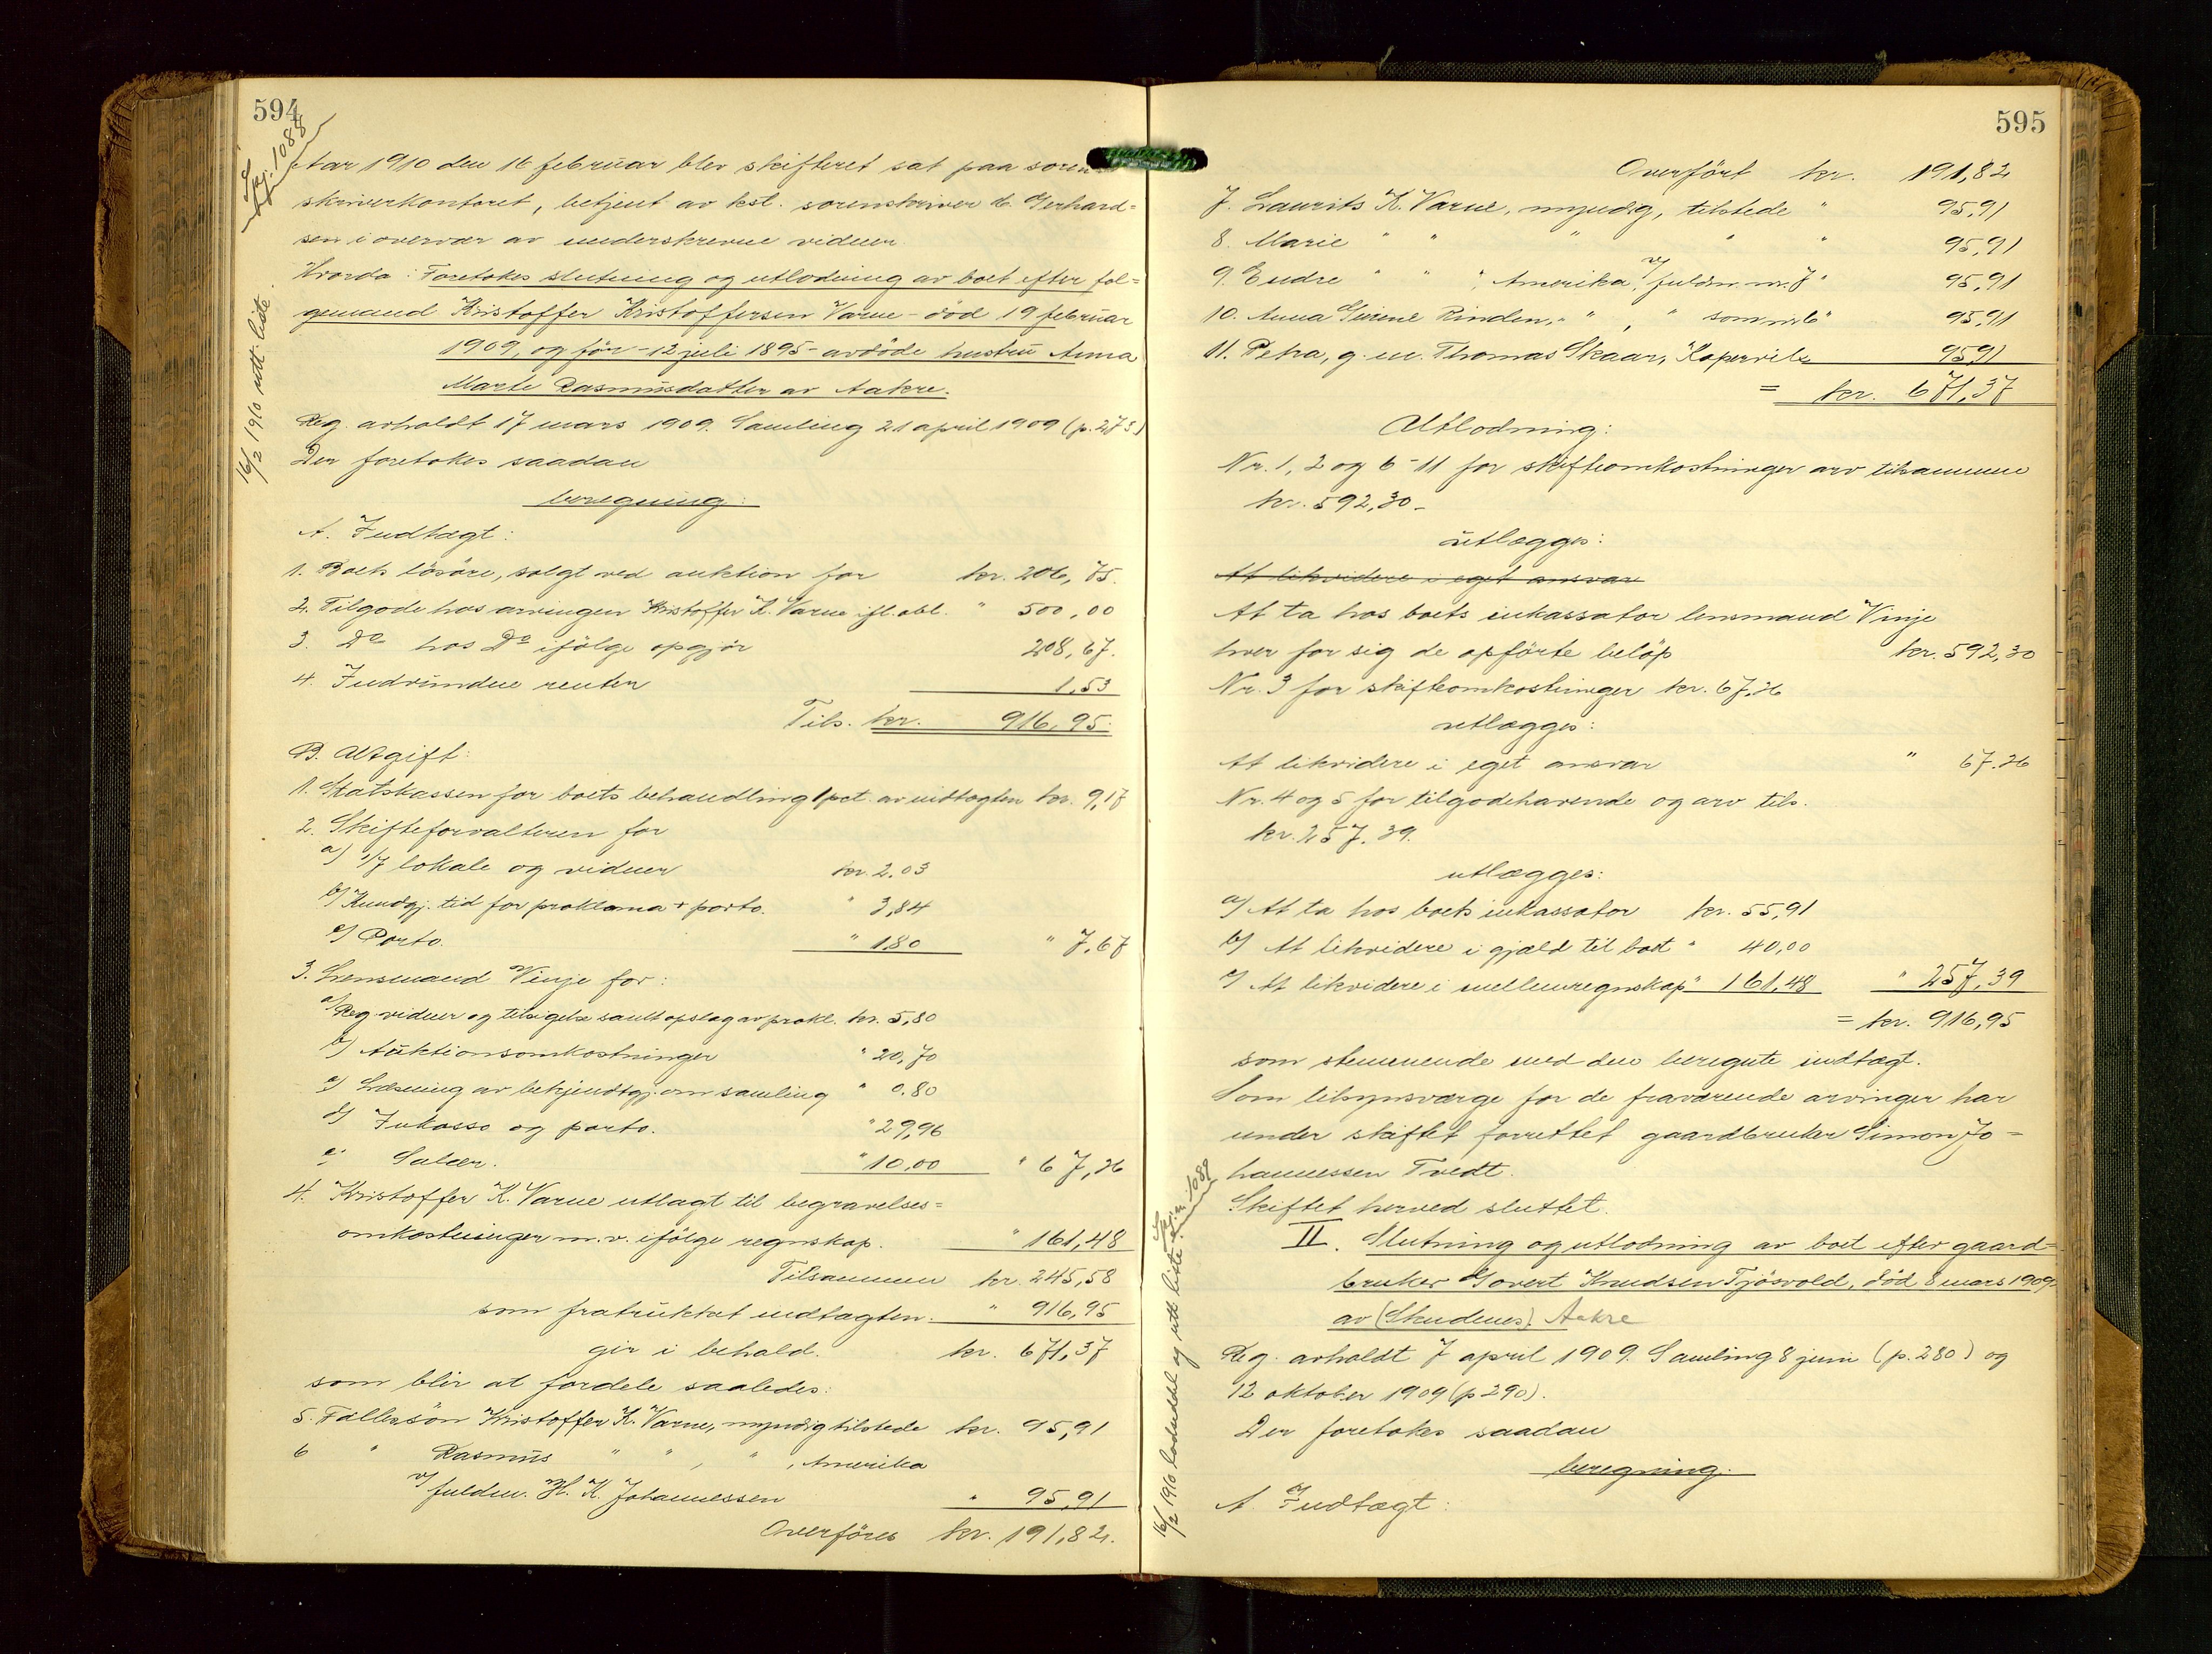 594
Skj. 1088
16/2 1910 utt liste.
Aar 1910 den 16 februar blev skifteret sat paa soren-
skriverkontoret, betjent av kst. sorenskriver d. Gerhard-
sen i overvær av underskrevne vidner
Hvorda: Foretokes slutning og utlodning av boet efter fol-
gemand Kristoffer Kristoffersen Varne - död 19 februar
1909, og för - 12 juli 1895 - avdöde hustru Anna
Marte Rasmusdatter av Aakre.
Reg. avholdt 17 mars 1909. Samling 21 april 1909 (p. 273)
Der foretokes saadan
beregning:
A. Indtægt:
1. Boets lösöre, solgt ved auktion for kr. 206,75.
2. Tilgode hos arvingen Kristoffer K. Varne ifl. obl. " 500,00
3. Do hos Do ifölge opgjör 208,67.
4. Indvundne renter 1,53
Tils. kr. 916,95.
B. Utgift:
1. Statskassen for boets behandling 1 pct. av indtægten kr. 9,17
2. Skifteforvalteren for
a) 1/7 lokale og vidner kr. 2.03
b) Kundgj. tid for proklama + porto. " 3,84
c) Porto. " 1.80 " 7,67
3. Lensmand Vinje for:
a) Reg. vidner og tilsigelse samt opslag av prokl. kr. 5,80
b) Auktionsomkostninger " 20,70
c) Læsning av bekjendtgj. om samling " 0.80
d) Inkasso og porto. " 29,96
e) Salær. " 10,00 " 67,26
4. Kristoffer K. Varne utlagt til begravelses-
omkostninger m. v. ifölge regnskap. " 161,48
Tilsammen kr. 245,58
som fratrukket indtægten. " 916,95
gir i behold. kr. 671,37
som blir at fordele saaledes:
5. Fællessön Kristoffer K. Varne, myndig tilstede kr. 95,91
6 " Rasmus " " , " , Amerika
v/ fuldm. H. K. Johannessen " 95,91
Overföres kr. 191,82.
595
Overfört kr. 191,82
7. Laurits K. Varne, myndig, tilstede " 95,91
8. Marie " " " " " 95,91
9. Endre " " " Amerika v/ fuldm. nr. 7 " 95,91
10. Anna Serine Rinden, " " , " som nr. 6 " 95,91
11. Petra, g. m. Thomas Skaar, Kopervik 95,91
= kr. 671,37
Utlodning:
Nr. 1, 2 og 6-11 for skifteomkostninger arv tilsammen
kr. 592,30 -
utlægges:
At likvidere i eget ansvar
At ta hos boets inkassator lensmand Vinje
hver for sig de opförte belöp kr. 592,30
Nr. 3 for skifteomkostninger kr. 67.26
utlægges:
At likvidere i eget ansvar " 67.26
Nr. 4 og 5 for tilgodehavende og arv tils.
kr. 257,39.
utlægges:
a) At ta hos boets inkassator kr. 55,91
b) At likvidere i gjæld til boet " 40,00
c) At likvidere i mellemregnskap " 161,48 " 257,39
= kr. 916,95
som stemmende med den beregnte indtægt.
Som tilsynsværge for de fraværende arvinger har
under skiftet forrettet gaardbruker Simon Jo-
hannessen Tvedt.
Skiftet herved sluttet.
Skj. nr. 1089
16/2 1910 lodseddel og utt liste
II. Slutning og utlodning av boet efter gaard-
bruker Govert Knudsen Tjösvold, död 8 mars 1909
av (Skudenes). Aakre
Reg. avholdt 7 april 1909. Samling 8 juni (p. 280) og
12 oktober 1909 (p 290).
Der foretokes saadan
beregning:
A. Indtægt: